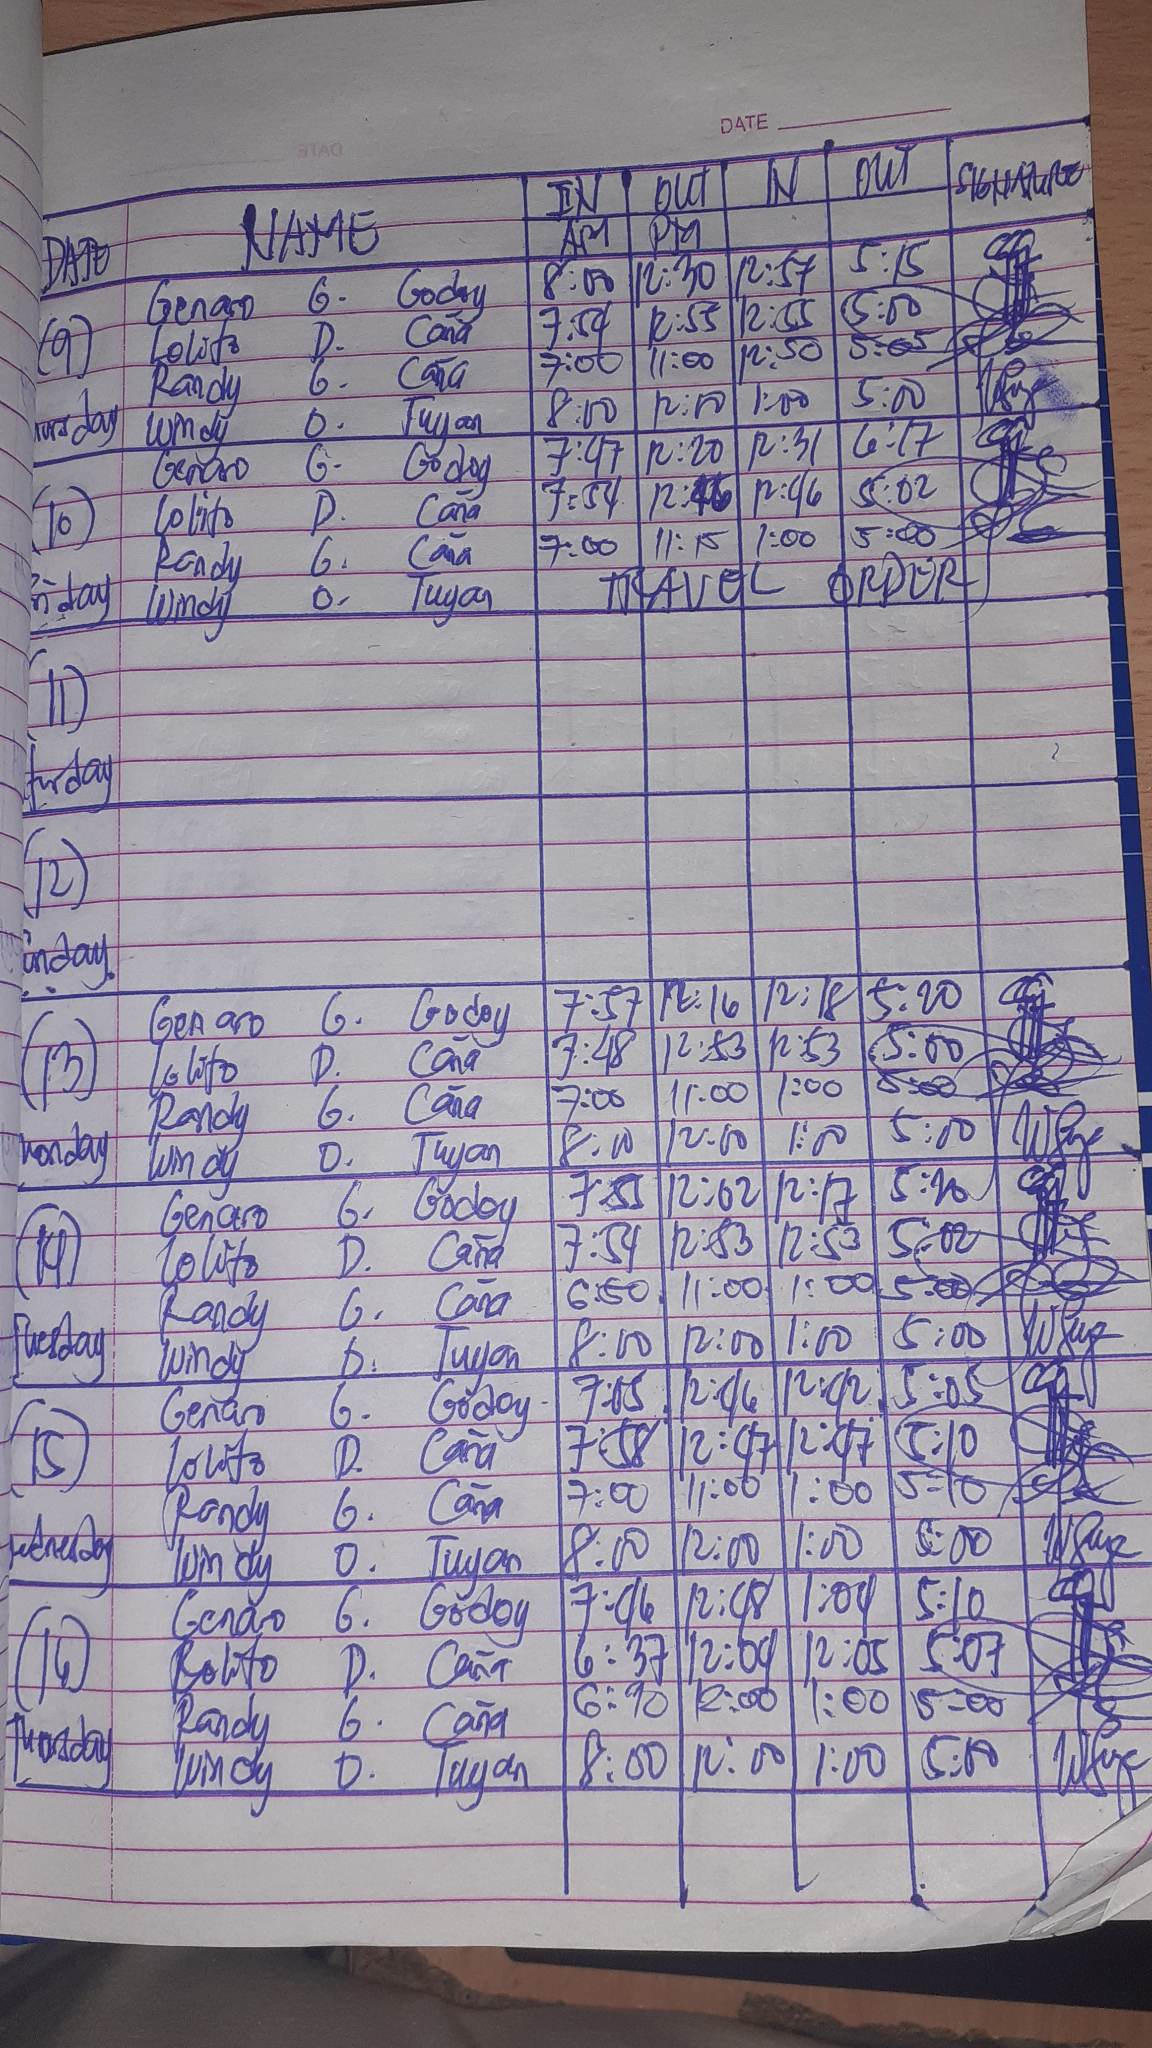 DATE
DATE NAME IN OUT IN OUT SIGNATURE
AM PM
Genaro G. Godoy 8:00 12:30 12:57 5:15
(9) Lolito D. Caña 7:54 12:55 12:55 5:00
Randy G. Caña 7:00 11:00 12:50 5:05
ursday Windy O. Tuyan 8:00 12:00 1:00 5:00
Genaro G. Godoy 7:47 12:20 12:31 6:17
(10) Lolito D. Caña 7:54 12:46 12:46 5:02
Randy G. Caña 7:00 11:15 1:00 5:00
day Windy O. Tuyan TRAVEL ORDER
(11)
turday
(12)
unday.
Genaro G. Godoy 7:57 12:16 12:18 5:20
(13) Lolito D. Caña 7:48 12:53 12:53 5:00
Randy G. Caña 7:00 11:00 1:00 5:00
monday Windy O. Tuyan 8:00 12:00 1:00 5:00
Genaro G. Godoy 7:55 12:02 12:17 5:20
(14) Lolito D. Caña 7:54 12:53 12:53 5:02
Randy G. Caña 6:50 11:00 1:00 5:00
Tuesday Windy O. Tuyan 8:00 12:00 1:00 5:00
Genaro G. Godoy 7:05 12:46 12:42 5:05
(15) Lolito D. Caña 7:58 12:47 12:47 5:10
Randy G. Caña 7:00 11:00 1:00 5:10
wednesday Windy O. Tuyan 8:00 12:00 1:00 5:00
Genaro G. Godoy 7:46 12:48 1:04 5:10
(16) Lolito D. Caña 6:37 12:04 12:05 5:07
Randy G. Caña 6:40 12:00 1:00 5:00
Thursday Windy O. Tuyan 8:00 12:00 1:00 5:00